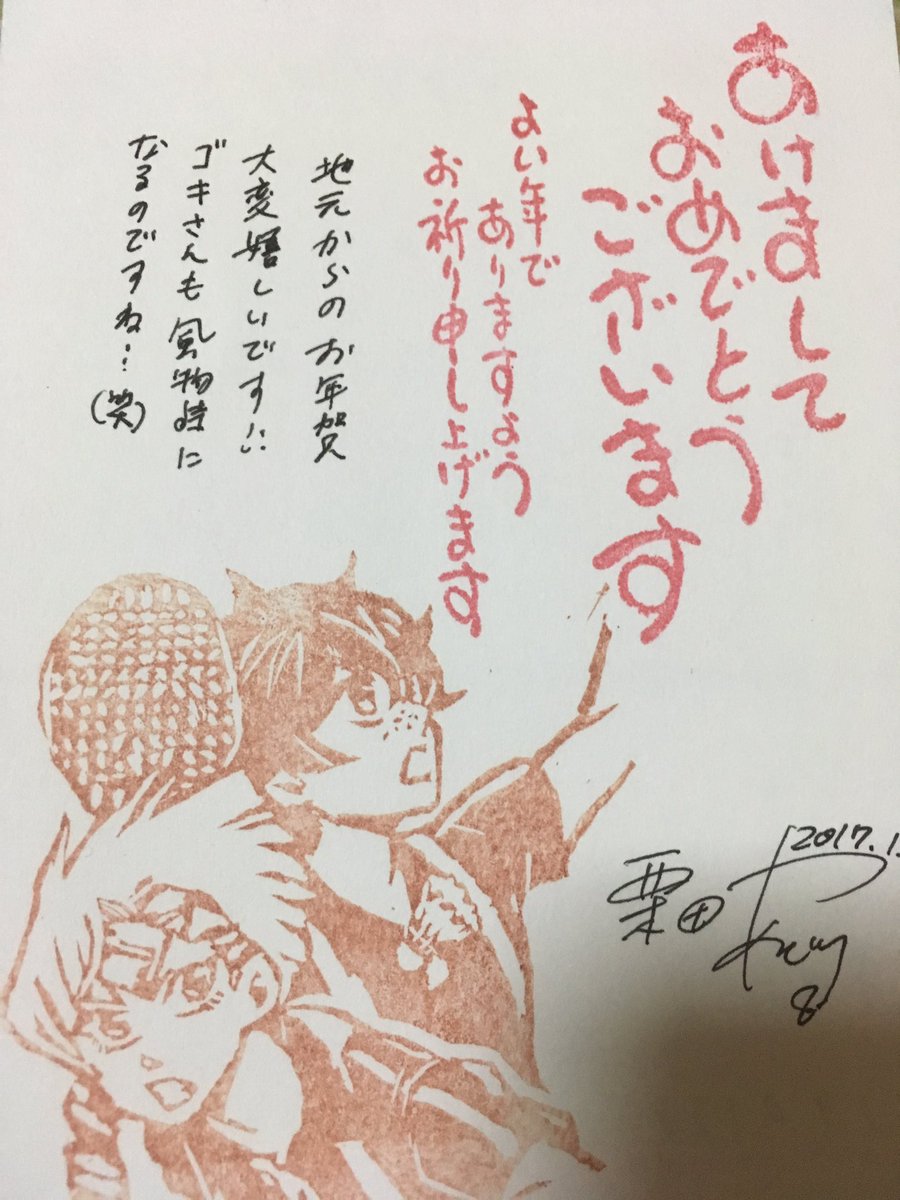 あけまして
おめでとう
ございます
よい年で
ありますよう
お祈り申し上げます
地元からのお年賀
大変嬉しいです!!
ゴキさんも風物詩に
なるのですね…(笑)
2017.1.
栗田
8